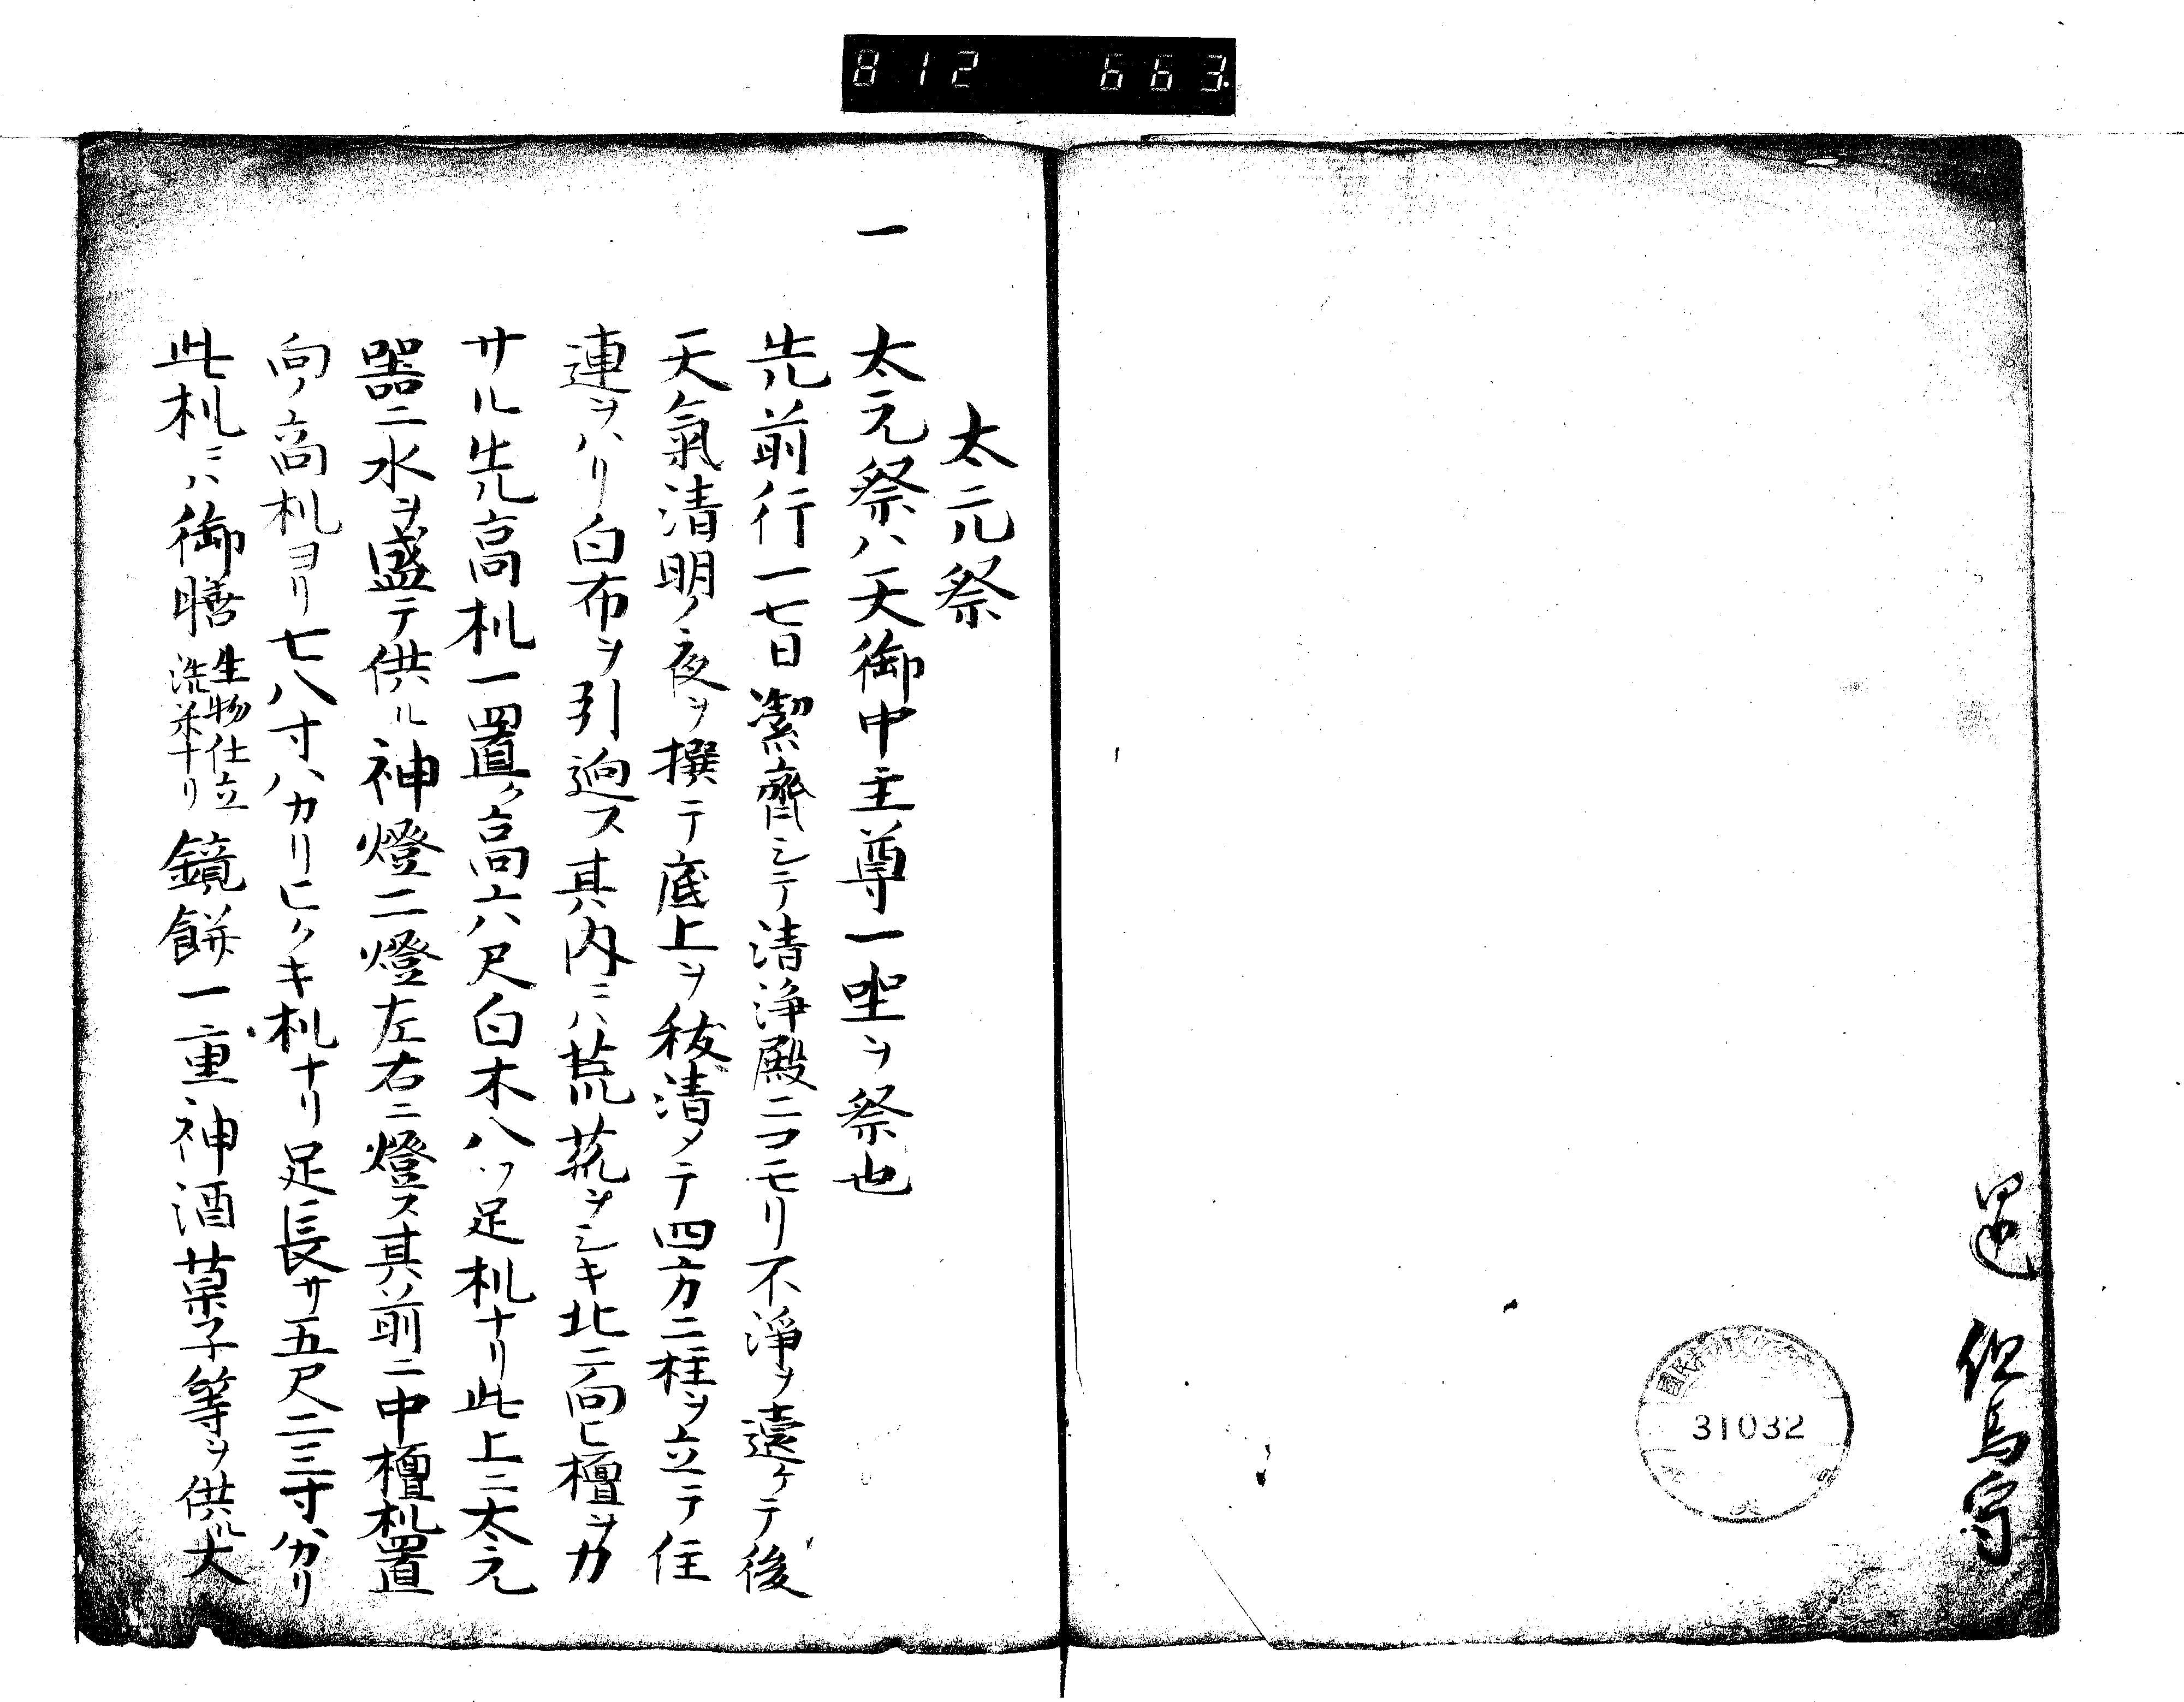 812 663
但馬守
31032
太元祭
一 太元祭ハ天御中主尊一坐ヲ祭也
先前行一七日潔齊シテ清浄殿ニコモリ不淨ヲ遠ケテ後
天氣清明ノ夜ヲ撰テ底上ヲ秡清メテ四方ニ柱ヲ立テ住
連ヲハリ白布ヲ引廻ス其内ニハ荒菰ヲシキ北ニ向ヒ檀ヲカ
サル先高机一置ク高六尺白木八ツ足机ナリ此上ニ太元
器ニ水ヲ盛テ供ル神燈二燈左右ニ燈ス其前ニ中檀机置
向ノ高机ヨリ七八寸ハカリヒクキ机ナリ足長サ五尺二三寸ハカリ
此机ニハ御膳生物仕立洗米ナリ鏡餅一重神酒菓子等ヲ供ル大